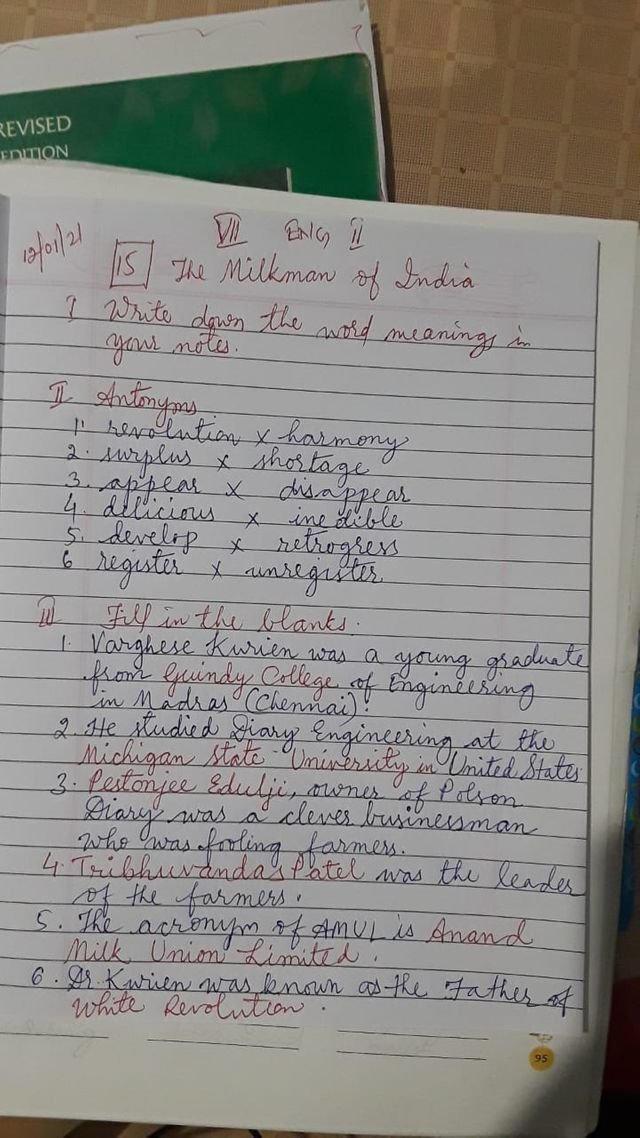 REVISED
EDITION
VII ENG II
12/01/21
15 The Milkman of India
I Write down the word meanings in
your notes.
II Antonyms
1. revolution x harmony
2. surplus x shortage
3. appear x disappear
4. delicious x inedible
5. develop x retrogress
6 register x unregister
III Fill in the blanks.
1. Varghese Kurien was a young graduate
from Guindy College of Engineering
in Madras (Chennai).
2. He studied Diary Engineering at the
Michigan State University in United States
3. Pestonjee Edulji, owner of Polson
Diary was a clever businessman
who was fooling farmers.
4. Tribhuvandas Patel was the leader
of the farmers.
5. The acronym of AMUL is Anand
Milk Union Limited.
6. Dr. Kurien was known as the Father of
White Revolution.
95